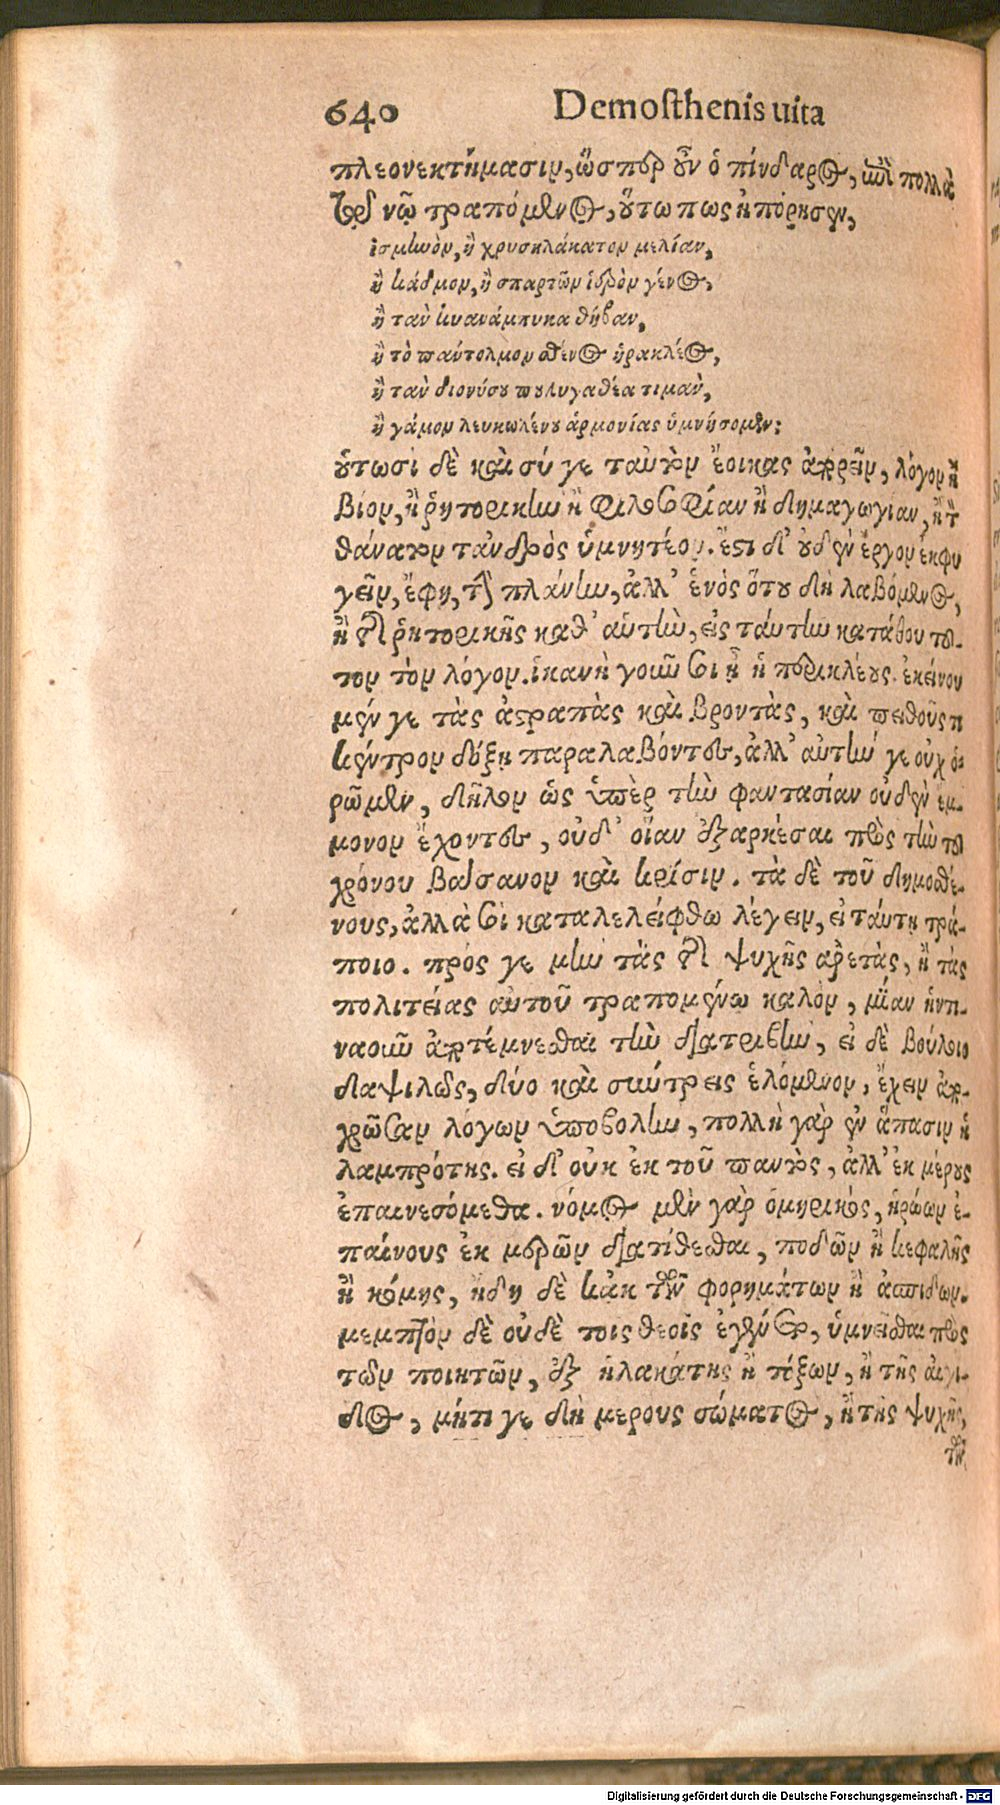 640 Demosthenis uita
πλεονεκτήμασιν, ὥσπερ οὖν ὁ πίνδαρος, ἐπὶ πολλὰ
τῷ νῷ τραπόμενος, οὕτω πως ἠπόρησεν,
ἰσμηνὸν, ἢ χρυσηλάκατον μελίαν,
ἢ κάδμον, ἢ σπαρτῶν ἱερὸν γένος,
ἢ τὰν κυανάμπυκα θήβαν,
ἢ τὸ παύτολμον σθένος ἡρακλέος,
ἢ τὰν διονύσου πολυγαθέα τιμὰν,
ἢ γάμον λευκωλένου ἁρμονίας ὑμνήσομεν;
οὑτωσὶ δὲ καὶ σύ γε ταυτὸν ἔοικας ἀπορεῖν, λόγον ἢ
βίον, ἢ ῥητορικὴν ἢ φιλοσοφίαν ἢ δημαγωγίαν, ἢ τ
θάνατον τἀνδρὸς ὑμνητέον. ἔστι δ' οὐδὲν ἔργον ἐκφυ
γεῖν, ἔφη, τὴν πλάνην, ἀλλ' ἑνὸς ὅτου δὴ λαβόμενος,
ἢ τῆς ῥητορικῆς καθ' αὑτὴν, εἰς ταύτην κατάθου τοῦ-
τον τὸν λόγον. ἱκανὴ γοῦν σοι ᾖ ἡ περικλέους. ἐκείνου
μέν γε τὰς ἀστραπὰς καὶ βροντὰς, καὶ πειθοῦς τι
κέντρον δόξῃ παραλαβόντες, ἀλλ' αὐτήν γε οὐχ ὁ-
ρῶμεν, δῆλον ὡς ὑπὲρ τὴν φαντασίαν οὐδὲν ἔμ-
μονον ἔχοντες, οὐδ' οἵαν ἐξαρκέσαι πρὸς τὴν τοῦ
χρόνου βάσανον καὶ κρίσιν. τὰ δὲ τοῦ δημοσθέ-
νους, ἀλλὰ σοὶ καταλελείφθω λέγειν, εἰ ταύτῃ τρά-
ποιο. πρός γε μὴν τὰς τῆς ψυχῆς ἀρετὰς, ἢ τὰς
πολιτείας αὐτοῦ τραπομένῳ καλὸν, μίαν ἡντι-
ναοῦν ἀποτέμνεσθαι τὴν διατριβὴν, εἰ δὲ βούλοιο
δαψιλῶς, δύο καὶ που τρεῖς ἑλόμενον, ἔχειν ἀπο-
χρῶσαν λόγων ὑποβολὴν, πολλὴ γὰρ ἐν ἅπασιν ἡ
λαμπρότης. εἰ δ' οὐκ ἐκ τοῦ παντὸς, ἀλλ' ἐκ μέρους
ἐπαινεσόμεθα. νόμος μὲν γὰρ ὁμηρικὸς, ἡρώων ἐ-
παίνους ἐκ μερῶν διατίθεσθαι, ποδῶν ἢ κεφαλῆς
ἢ κόμης, ἤδη δὲ κἀκ τῶν φορημάτων ἢ ἀσπίδων.
μεμπτὸν δὲ οὐδὲ τοῖς θεοῖς ἐγένετο, ὑμνεῖσθαι πρὸς
τῶν ποιητῶν, ἐξ ἠλακάτης ἢ τόξων, ἢ τῆς αἰγί-
δος, μήτι γε δὴ μέρους σώματος, ἢ τῆς ψυχῆς,
τῶν
Digitalisierung gefördert durch die Deutsche Forschungsgemeinschaft - DFG